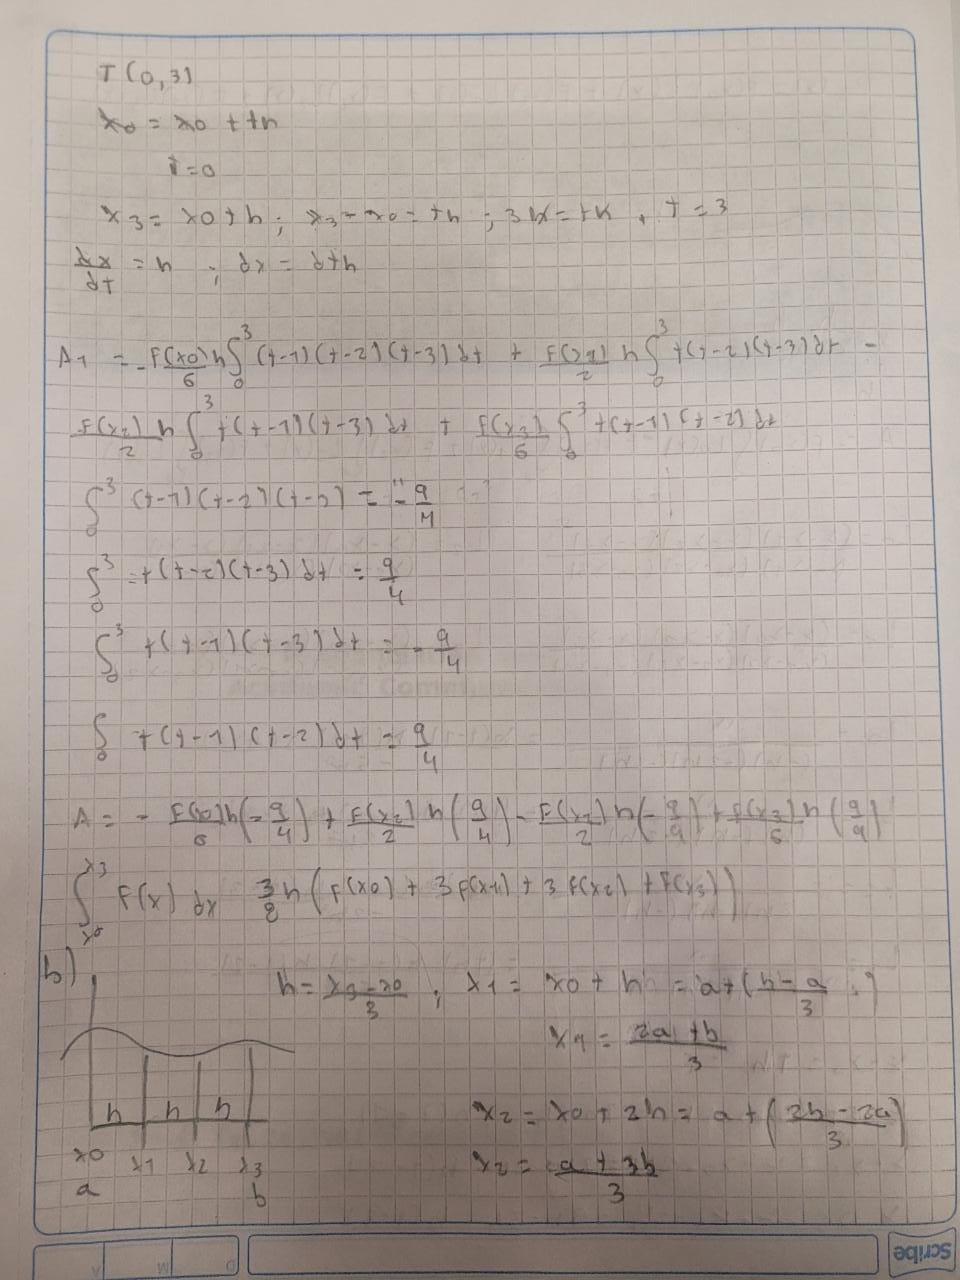 T(0,3)
x0 = x0 + th
i=0
x3 = x0 + h ; x3 - x0 = th ; 3h = th , T = 3
dx/dt = h ; dx = dth
A1 = -F(x0)/6 h ∫0^3 (t-1)(t-2)(t-3) dt + F(x1)/2 h ∫0^3 t(t-2)(t-3) dt -
F(x2)/2 h ∫0^3 t(t-1)(t-3) dt + F(x3)/6 ∫0^3 t(t-1)(t-2) dt
∫0^3 (t-1)(t-2)(t-3) = -9/4
∫0^3 = t(t-2)(t-3) dt = 9/4
∫0^3 t(t-1)(t-3) dt = -9/4
∫0 t(t-1)(t-2) dt = 9/4
A = - F(x0)h/6 (-9/4) + F(x1)/2 h (9/4) - F(x2)/2 h (-9/4) + F(x3)/6 h (9/4)
∫x0^x3 F(x) dx 3/8 h (F(x0) + 3F(x1) + 3F(x2) + F(x3))
b)
h = x3 - x0/3 ; x1 = x0 + h = a + (b - a/3)
x1 = 2a + b/3
h h h
x2 = x0 + 2h = a + (2b - 2a/3)
x0 x1 x2 x3
x2 = a + 3b/3
a b
Scribe
D M A